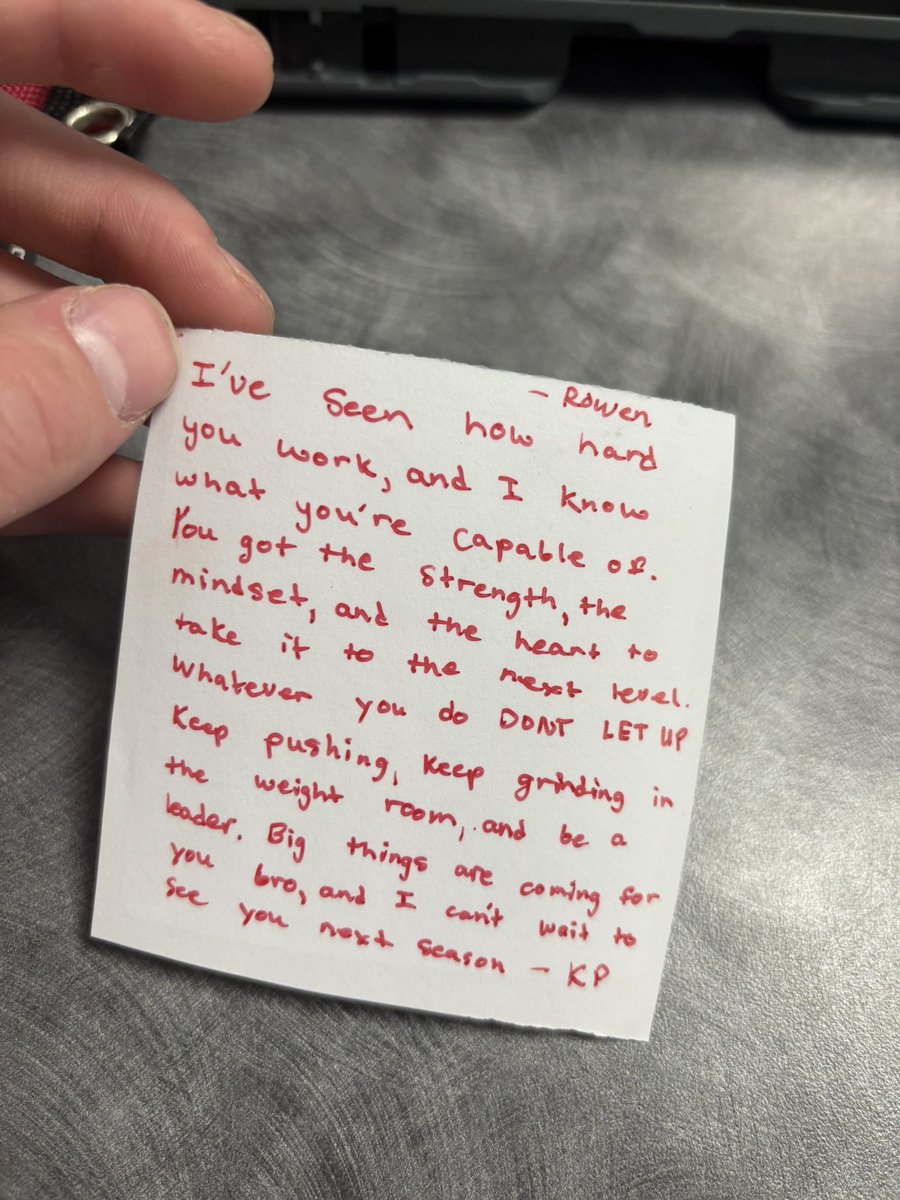 - Rowen
I've seen how hard
you work, and I know
what you're capable of.
You got the strength, the
mindset, and the heart to
take it to the next level.
Whatever you do DONT LET UP
Keep pushing, keep grinding in
the weight room, and be a
leader. Big things are coming for
you bro, and I can't wait to
see you next season - KP